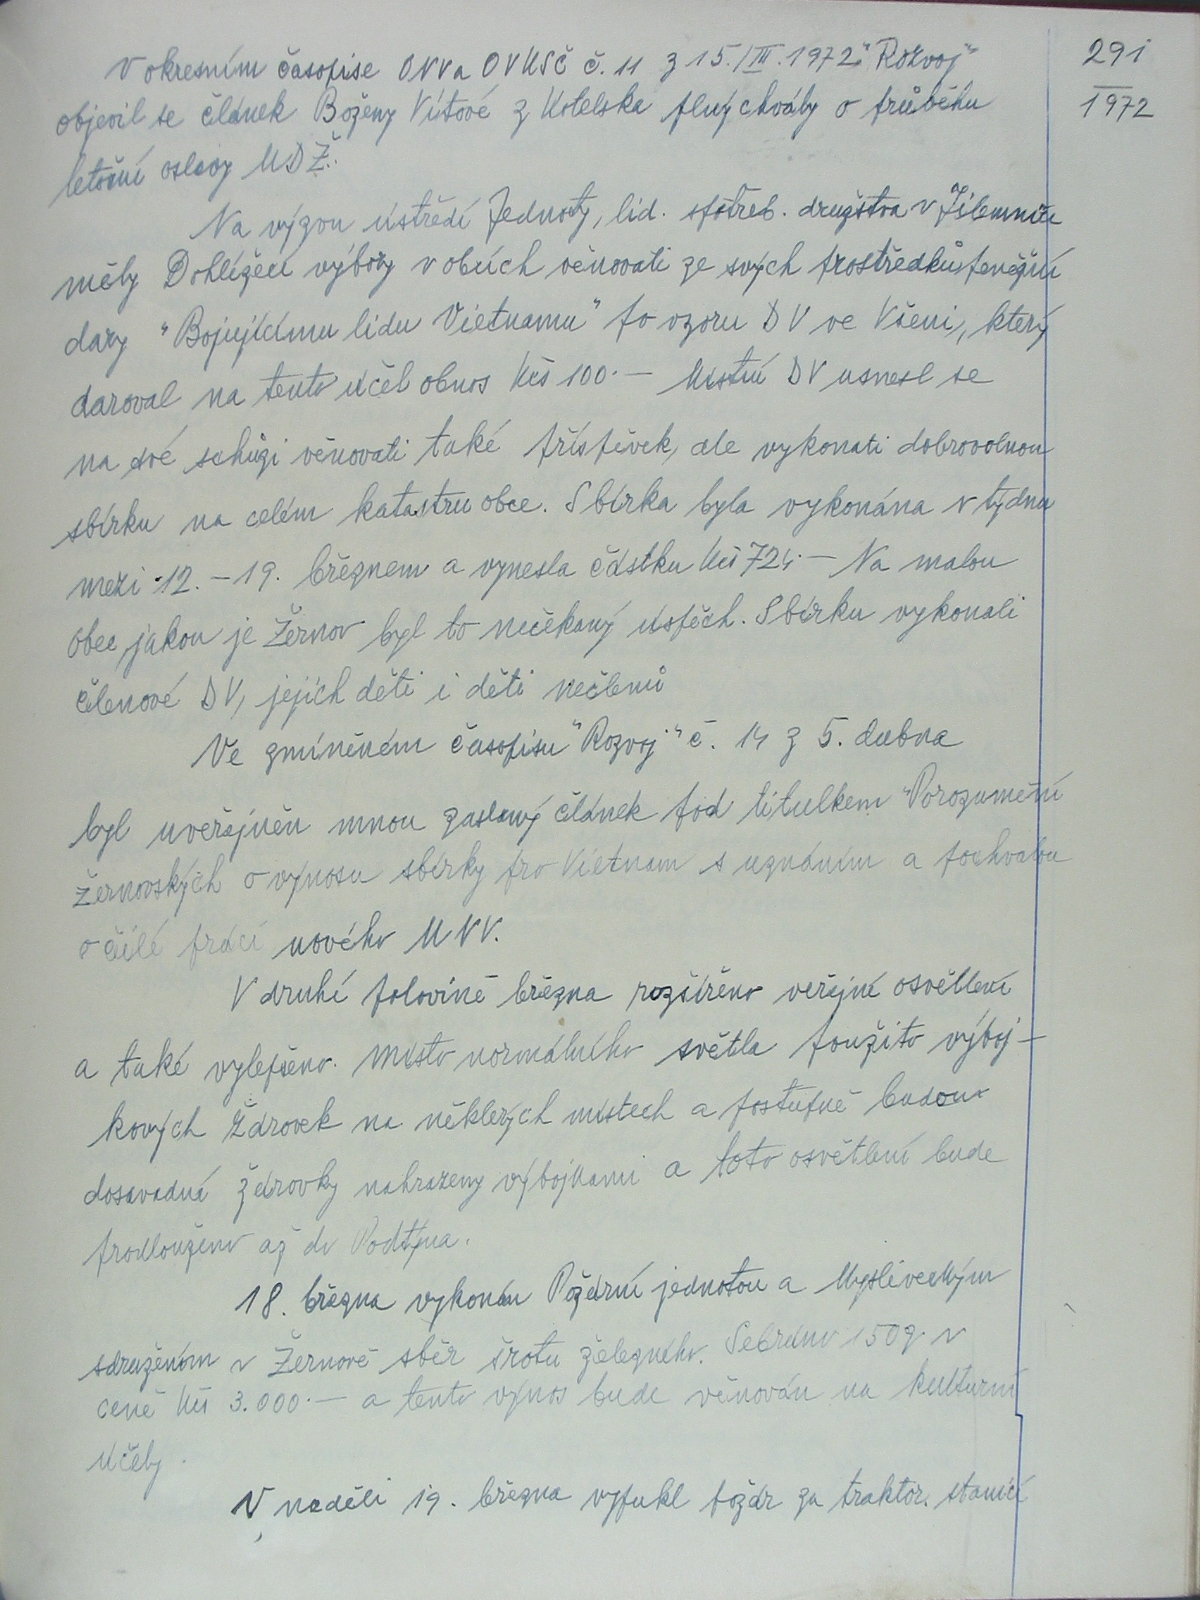 291
1972
V okresním časopise ONV a OVKSČ č. 11 z 15./III. 1972 "Rozvoj"
objevil se článek Boženy Vítové z Kotelska plný chvály o průběhu
letošní oslavy MDŽ.
Na výzvu ústředí Jednoty, lid. spotřeb. družstva v Jilemnici
měly Dohlížecí výbory v obcích věnovati ze svých prostředků peněžní
dary "Bojujícímu lidu Vietnamu" po vzoru DV ve Všeni, který
daroval na tento účel obnos Kčs 100.— Místní DV usnesl se
na své schůzi věnovati také příspěvek, ale vykonati dobrovolnou
sbírku na celém katastru obce. Sbírka byla vykonána v týdnu
mezi 12. – 19. březnem a vynesla částku Kčs 724.— Na malou
obec, jakou je Žernov byl to nečekaný úspěch. Sbírku vykonali
členové DV, jejich děti i děti nečlenů
Ve zmíněném časopisu "Rozvoj" č. 14 z 5. dubna
byl uveřejněn mnou zaslaný článek pod titulkem "Porozumění
žernovských o výnosu sbírky pro Vietnam s uznáním a pochvalou
o čilé práci nového MNV.
V druhé polovině března rozšířeno veřejné osvětlení
a také vylepšeno. Místo normálního světla použito výboj-
kových žárovek na některých místech a postupně budou
dosavadní žárovky nahrazeny výbojkami a toto osvětlení bude
prodlouženo až do Podtýna.
18. března vykonán Požární jednotou a Mysliveckým
sdružením v Žernově sběr šrotu železného. Sebráno 150q v
ceně Kčs 3.000.— a tento výnos bude věnován na kulturní
účely.
V neděli 19. března vypukl požár za traktor. stanicí